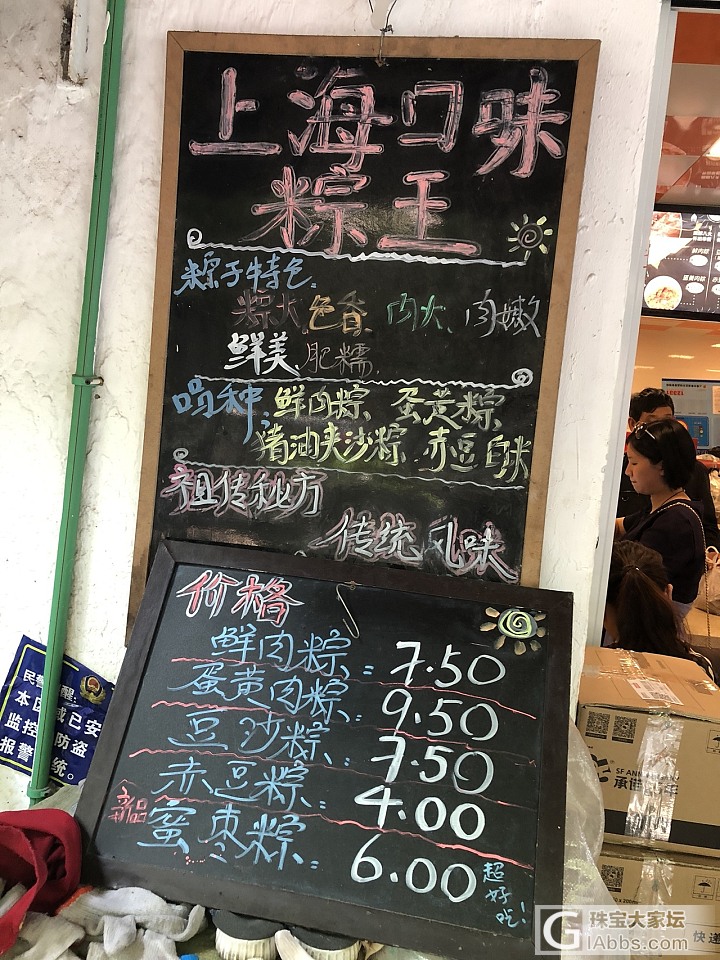 上海口味
粽王
粽子特色
粽大、色香、肉大、肉嫩
鲜美、肥糯
品种：鲜肉粽、蛋黄粽、
猪油夹沙粽、赤豆白米
祖传秘方
传统风味
价格
鲜肉粽：7.50
蛋黄肉粽：9.50
豆沙粽：7.50
赤豆粽：4.00
新品 蜜枣粽：6.00
超好吃！
承诺
快递
珠宝大家坛
iAbbs.com